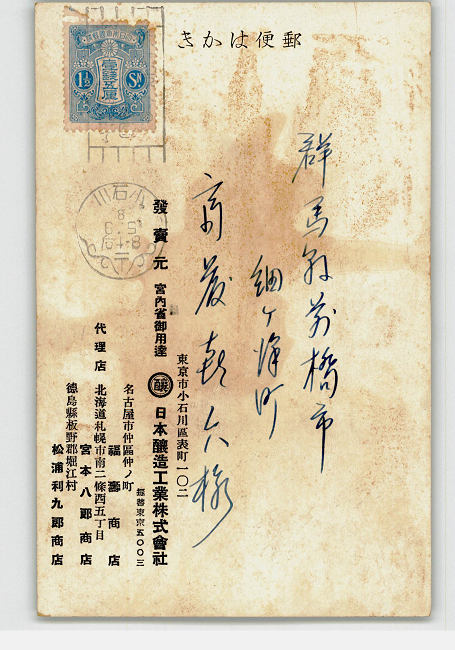 きかは便郵
大日本帝國郵便
壹錢五厘
1½ Sn
小石川
群馬縣前橋市
細ヶ澤町
喜六様
東京市小石川區表町一〇二
發賣元 宮內省御用達 釀 日本釀造工業株式會社
振替東京五〇〇三
名古屋市仲區仲ノ町
福壽商店
代理店 北海道札幌市南二條西五丁目
宮本八郞商店
德島縣板野郡堀江村
松浦利九郞商店